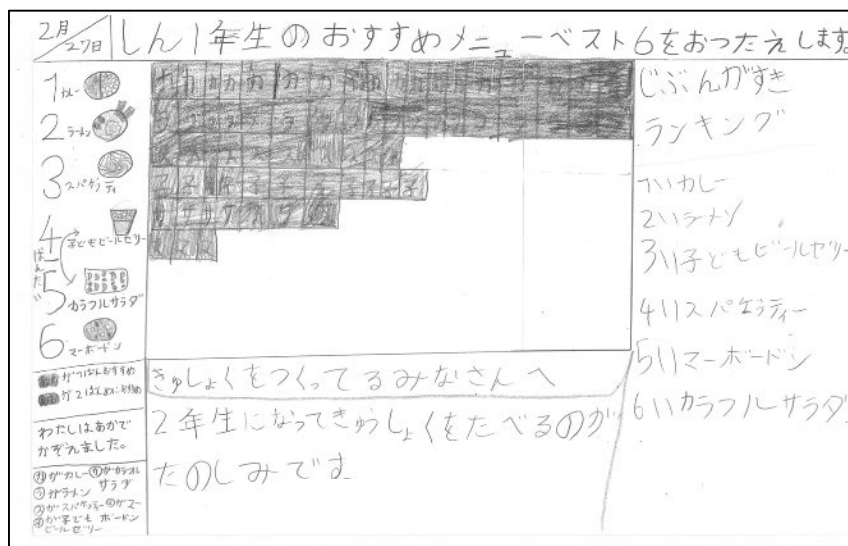 2月27日
しん1年生のおすすめメニューベスト6をおつたえします。
1 カレー
2 ラーメン
3 スパゲティ
4 子どもビールゼリー
はんたい
5 カラフルサラダ
6 マーボードン
が1ばんおすすめ
が2ばんめにおすすめ
わたしはあかで
かぞえました。
カがカレー カがカラフル
サラダ
ラがラーメン
スがスパゲッティー マがマー
ボードン
子が子ども
ビールゼリー
じぶんがすき
ランキング
1い カレー
2い ラーメン
3い 子どもビールゼリー
4い スパゲッティー
5い マーボードン
6い カラフルサラダ
きゅしょくをつくってるみなさんへ
2年生になってきゅうしょくをたべるのが
たのしみです